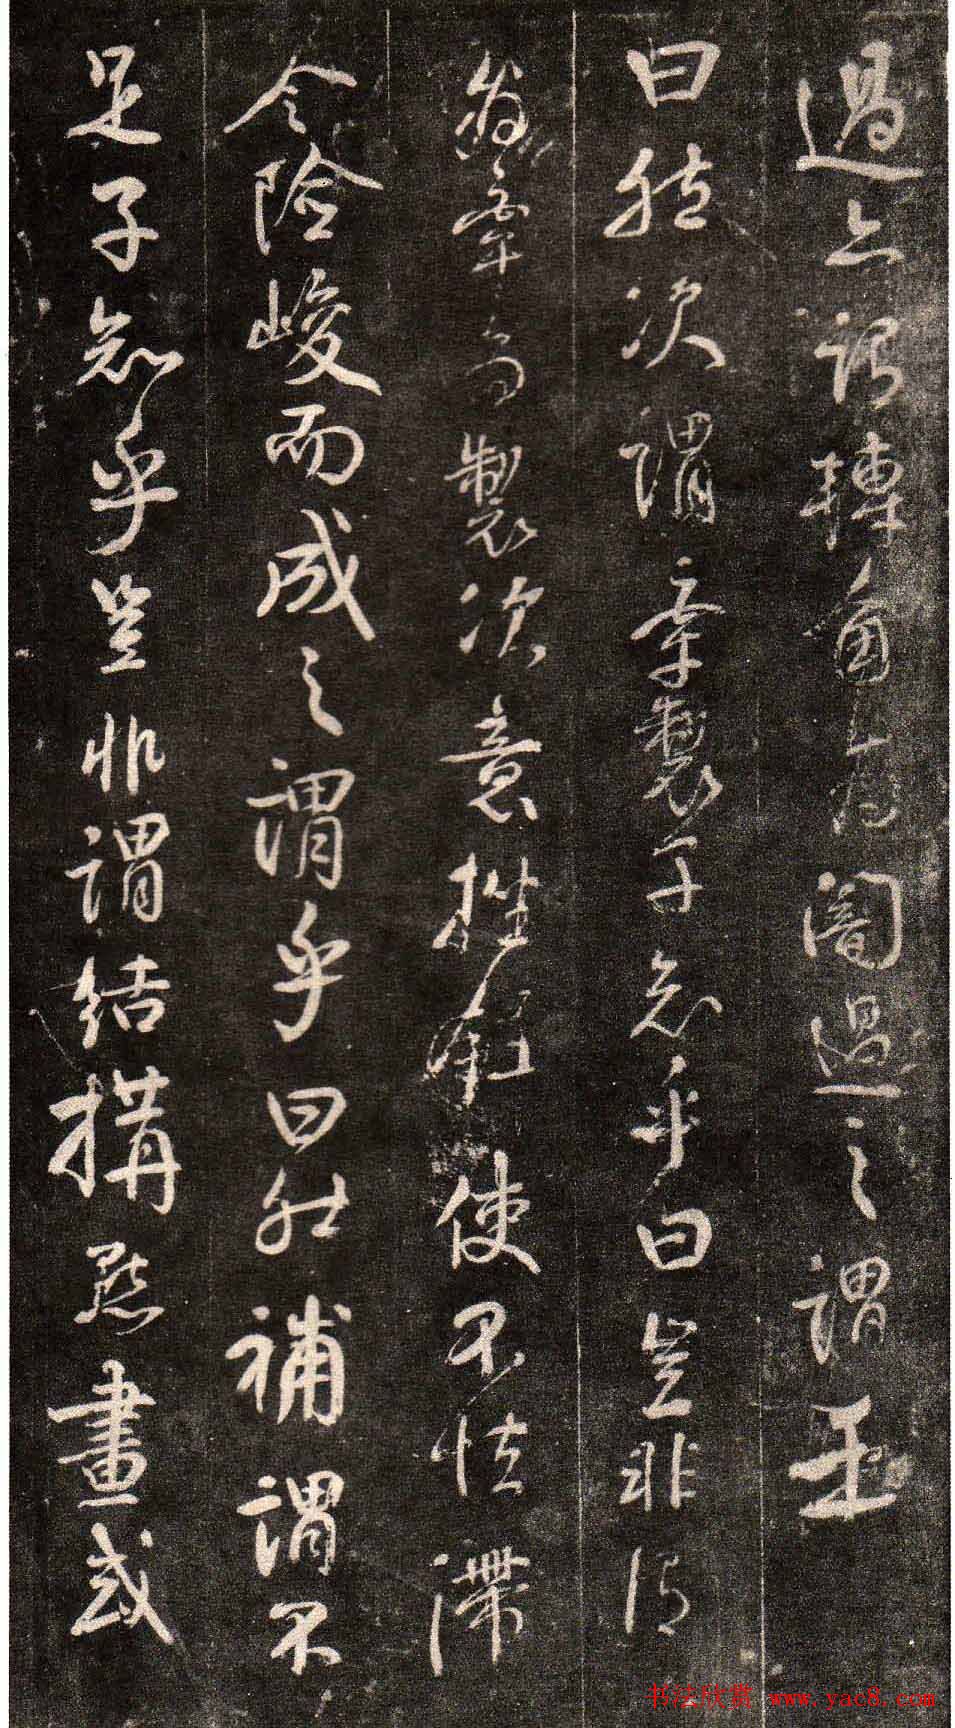 過亦謂轉角為闇過之謂
曰然次謂牽製子知乎曰豈非謂
為牽為製次意挫鋒使不怯滯
令險峻而成之謂乎曰然補謂不
足子知乎豈非謂結構點畫或
书法欣赏 www.yac8.com